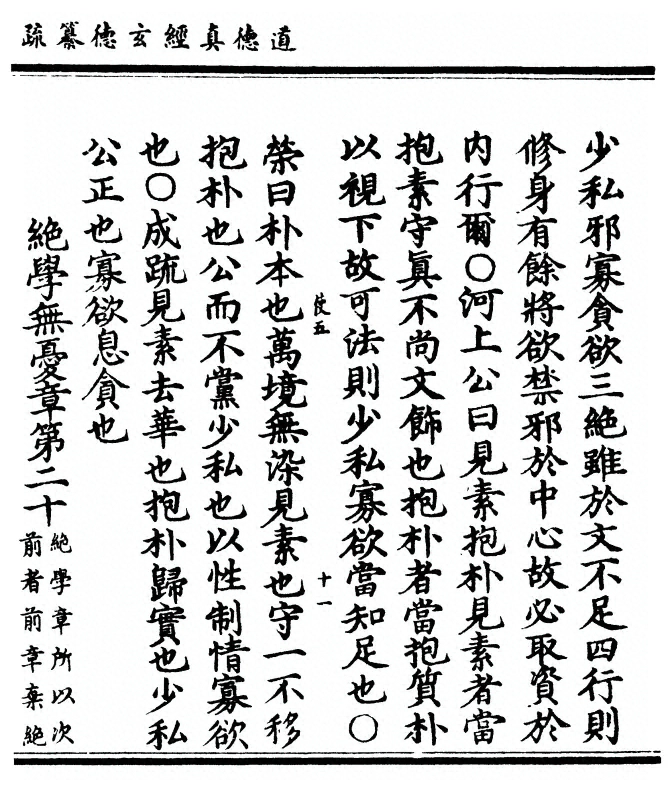 道德真經玄德纂疏
少私邪寡貪欲三絕雖於文不足四行則
修身有餘將欲禁邪於中心故必取資於
內行爾〇河上公曰見素抱朴見素者當
抱素守眞不尚文飾也抱朴者當抱質朴
以視下故可法則少私寡欲當知足也〇
使五
十一
榮曰朴本也萬境無染見素也守一不移
抱朴也公而不黨少私也以性制情寡欲
也〇成疏見素去華也抱朴歸實也少私
公正也寡欲息貪也
絕學無憂章第二十
絕學章所以次
前者前章棄絕